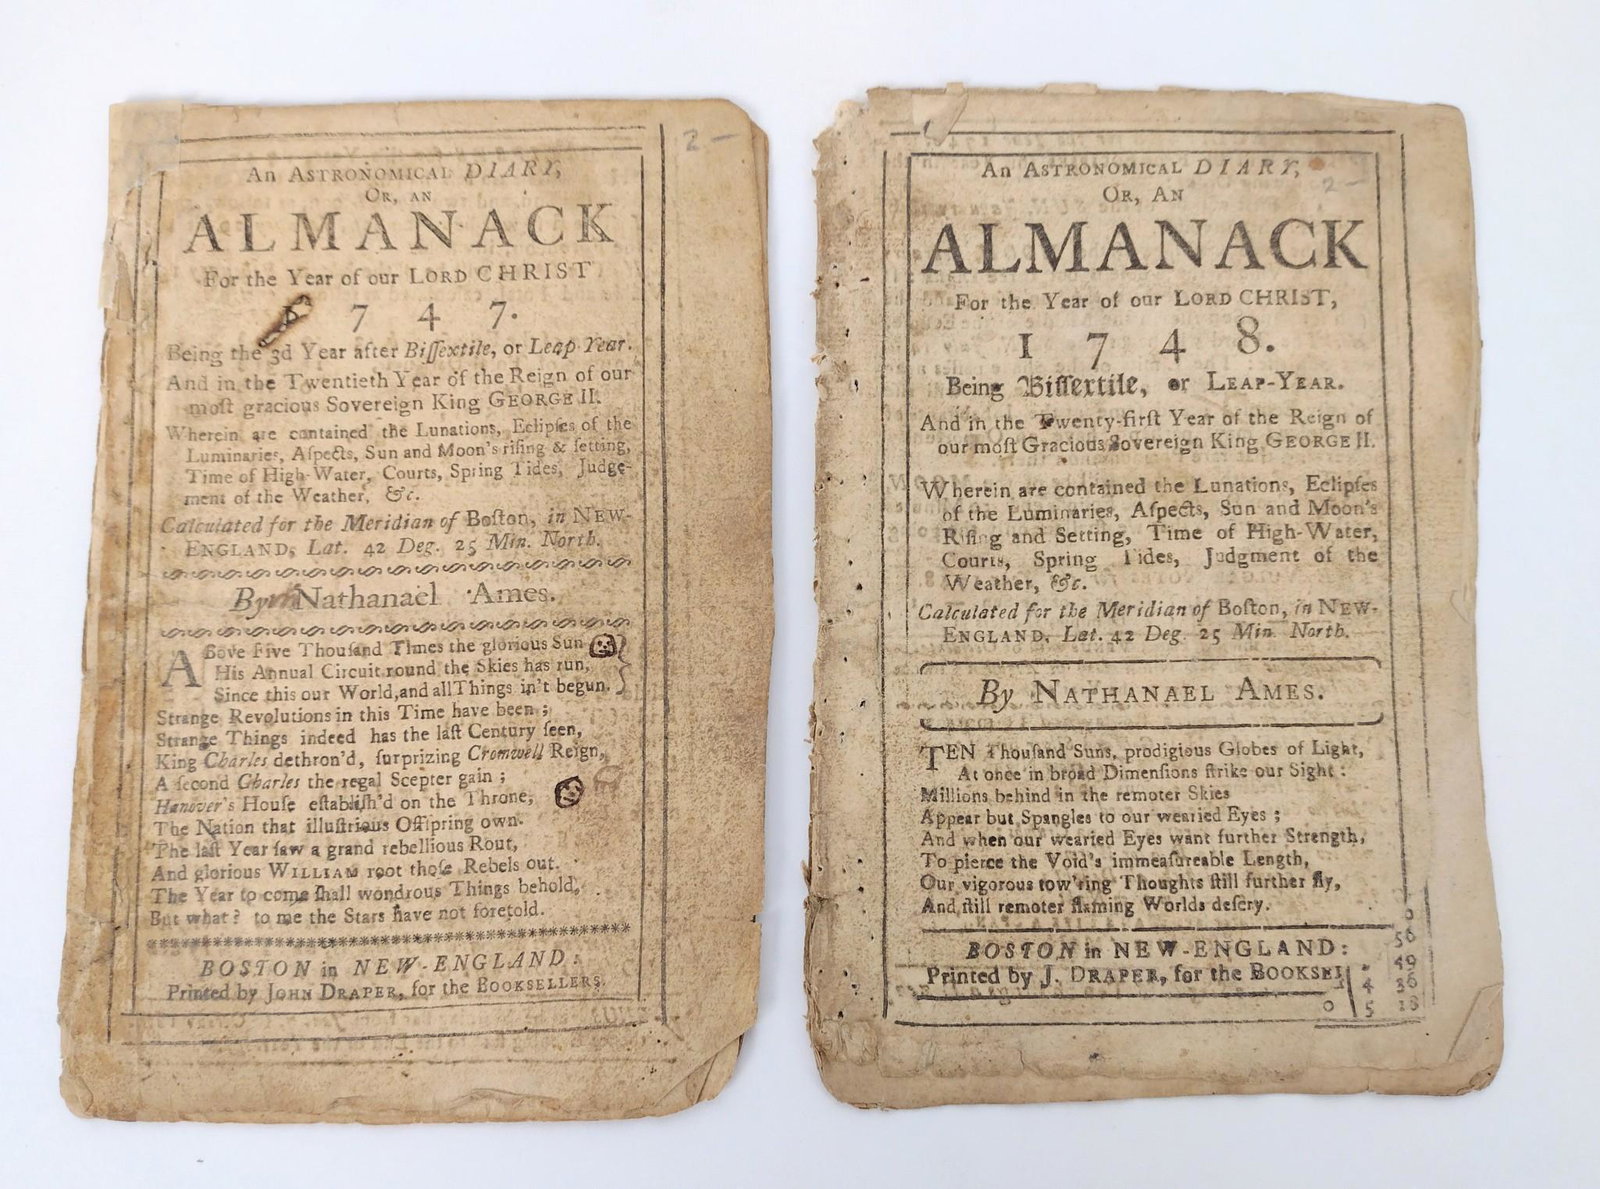 2 -
An ASTRONOMICAL DIARY,
OR, AN
ALMANACK
For the Year of our LORD CHRIST
1 7 4 7.
Being the 3d Year after Biſſextile, or Leap Year.
And in the Twentieth Year of the Reign of our
moſt gracious Sovereign King GEORGE II.
Wherein are contained the Lunations, Eclipſes of the
Luminaries, Aſpects, Sun and Moon's riſing & ſetting,
Time of High-Water, Courts, Spring Tides, Judge-
ment of the Weather, &c.
Calculated for the Meridian of Boſton, in NEW-
ENGLAND, Lat. 42 Deg. 25 Min. North.
By Nathanael Ames.
ABove Five Thouſand Times the glorious Sun
His Annual Circuit round the Skies has run,
Since this our World, and all Things in't begun.
Strange Revolutions in this Time have been;
Strange Things indeed has the laſt Century ſeen,
King Charles dethron'd, ſurprizing Cromwell Reign,
A ſecond Charles the regal Scepter gain;
Hanover's Houſe eſtabliſh'd on the Throne,
The Nation that illuſtrious Offſpring own.
The laſt Year ſaw a grand rebellious Rout,
And glorious WILLIAM root thoſe Rebels out.
The Year to come ſhall wondrous Things behold,
But what? to me the Stars have not foretold.
BOSTON in NEW-ENGLAND:
Printed by JOHN DRAPER, for the BOOKSELLERS.
An ASTRONOMICAL DIARY,
OR, AN
2 -
ALMANACK
For the Year of our LORD CHRIST,
1 7 4 8.
Being Biſſextile, or LEAP-YEAR.
And in the Twenty-firſt Year of the Reign of
our moſt Gracious Sovereign King GEORGE II.
Wherein are contained the Lunations, Eclipſes
of the Luminaries, Aſpects, Sun and Moon's
Riſing and Setting, Time of High-Water,
Courts, Spring Tides, Judgment of the
Weather, &c.
Calculated for the Meridian of Boſton, in NEW-
ENGLAND, Lat. 42 Deg. 25 Min. North.
By NATHANAEL AMES.
TEN Thouſand Suns, prodigious Globes of Light,
At once in broad Dimenſions ſtrike our Sight:
Millions behind in the remoter Skies
Appear but Spangles to our wearied Eyes;
And when our wearied Eyes want further Strength,
To pierce the Void's immeaſureable Length,
Our vigorous tow'ring Thoughts ſtill further fly,
And ſtill remoter flaming Worlds deſcry.
BOSTON in NEW-ENGLAND:
Printed by J. DRAPER, for the BOOKSEL
0
56
49
4 36
0 5 18